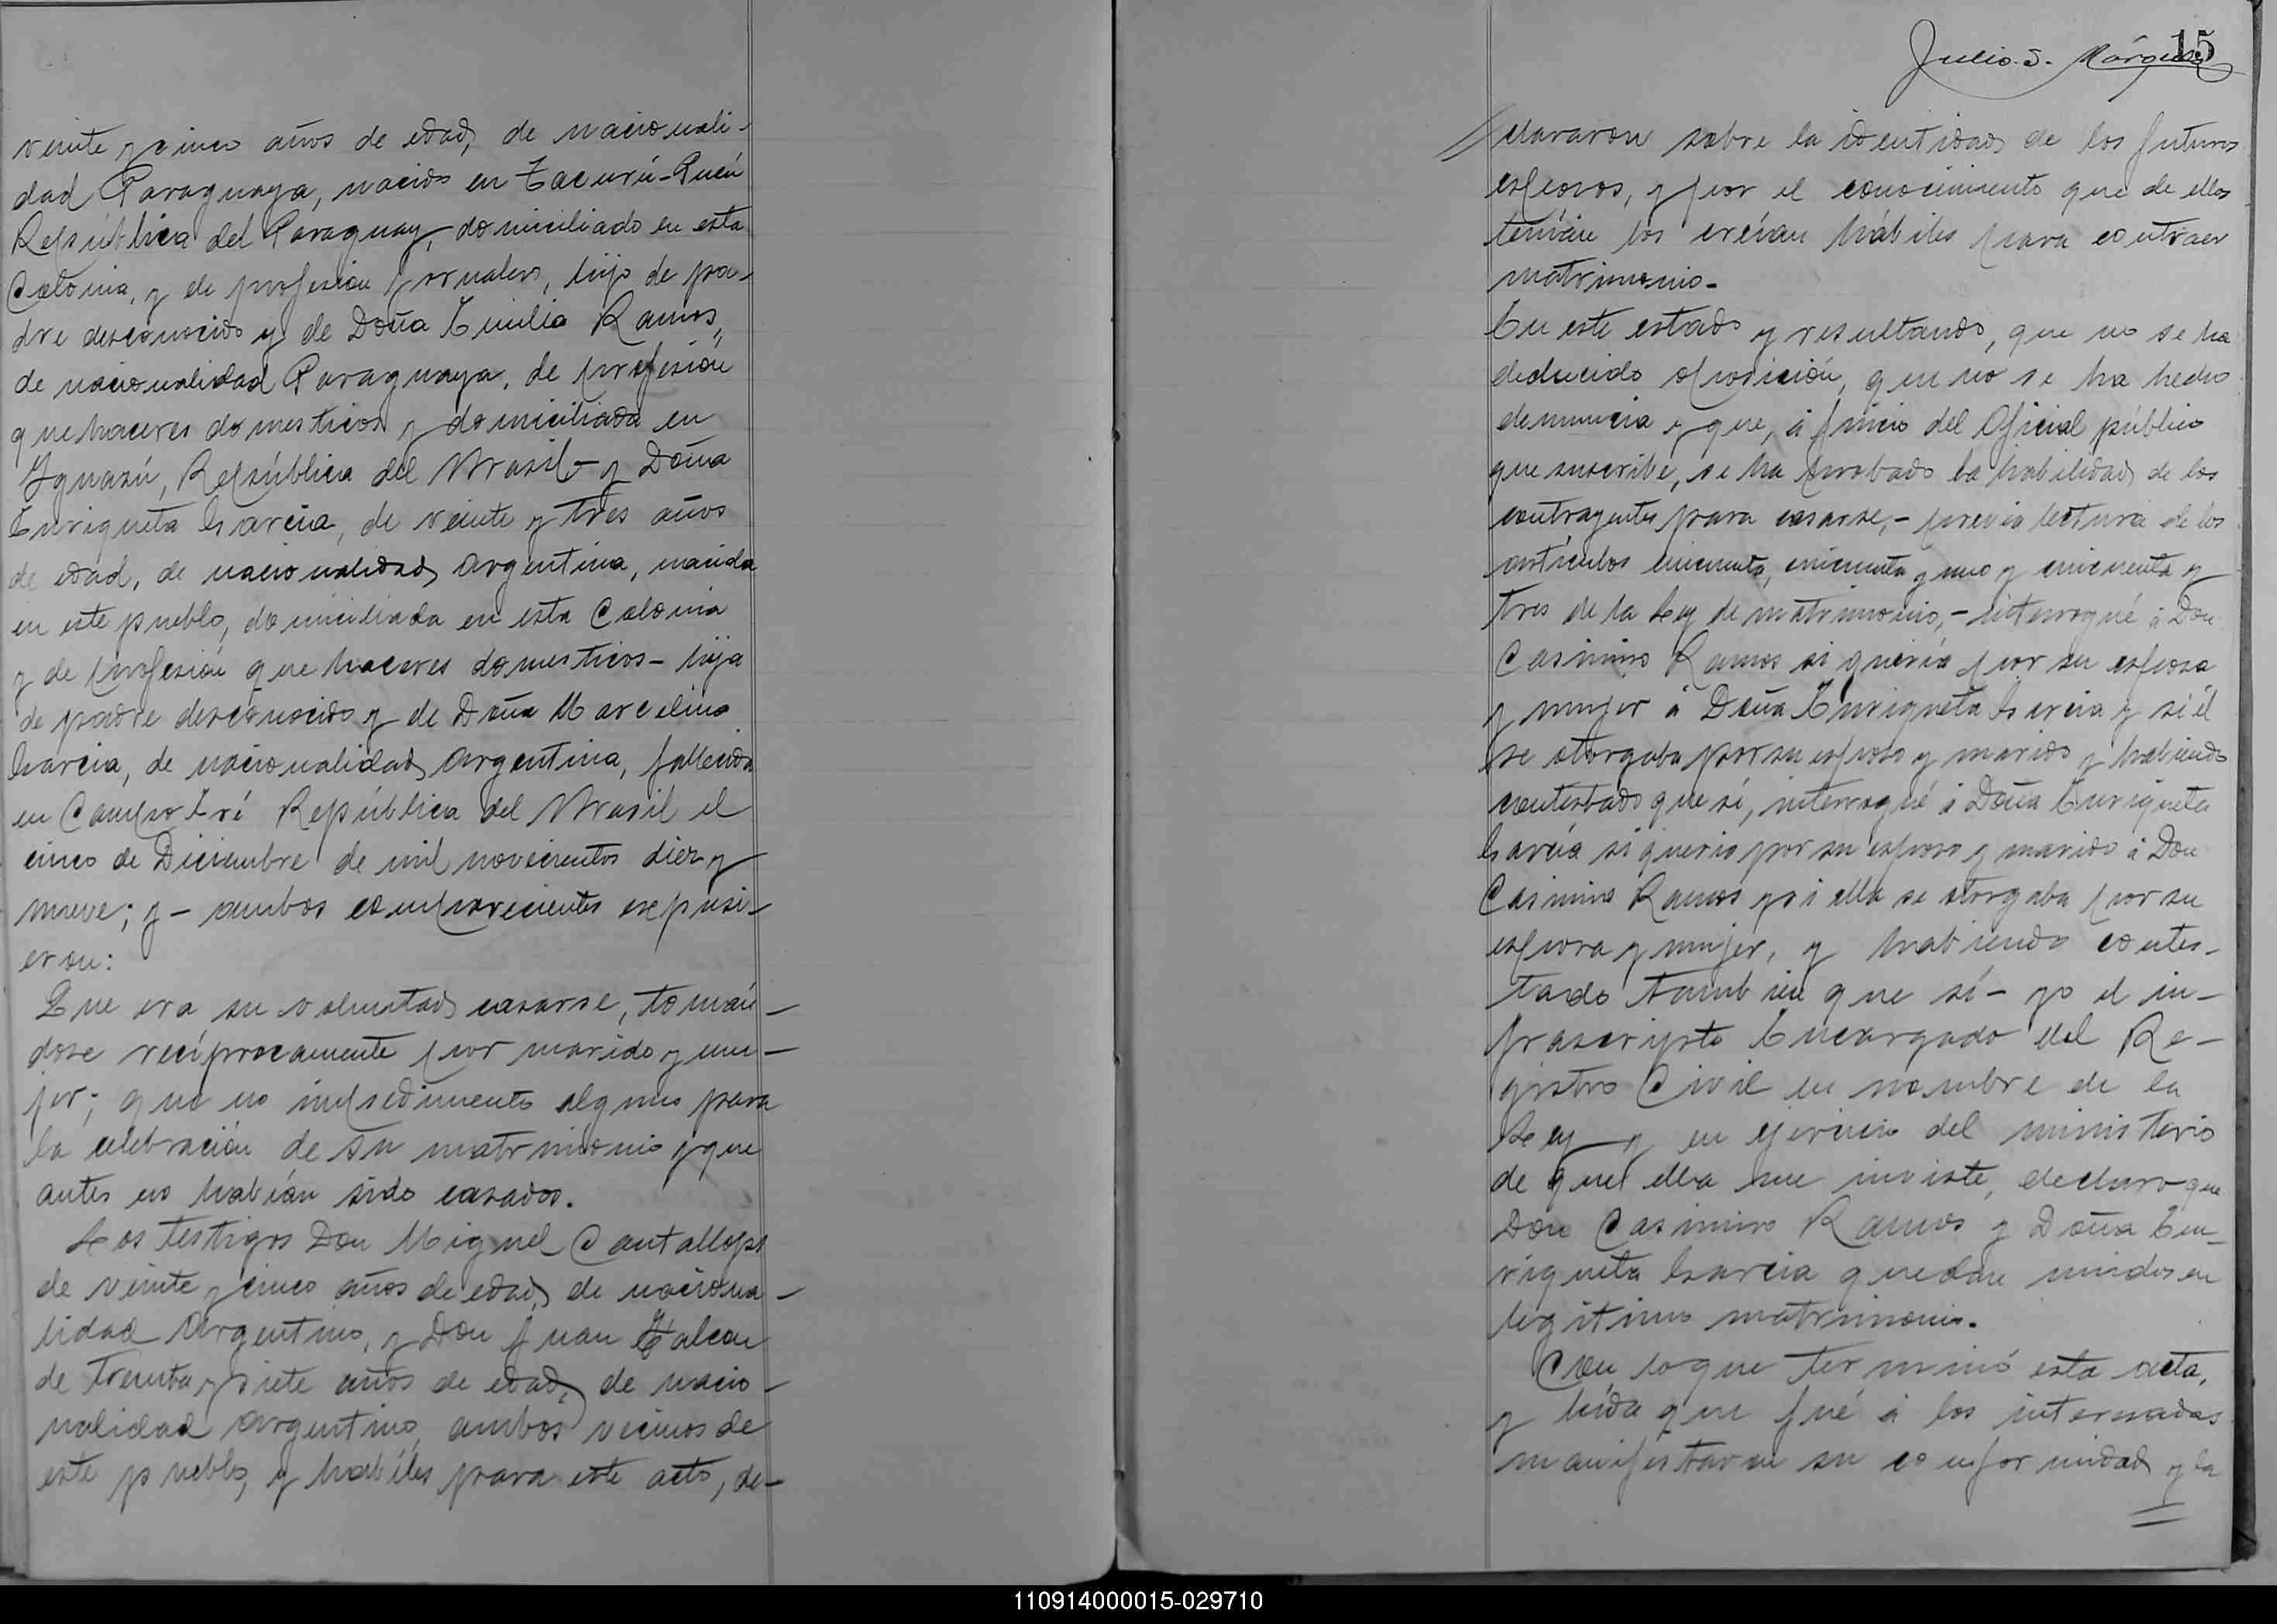 veinte y cinco años de edad, de nacionali-
dad Paraguaya, nacido en Tacurú-Pucú
República del Paraguay, domiciliado en esta
Colonia, y de profesión jornalero, hijo de pa-
dre desconocido y de Doña Emilia Ramos,
de nacionalidad Paraguaya, de profesión
quehaceres domesticos y domiciliada en
Yguasú, República del Brasil - y Doña
Enriqueta Garcia, de veinte y tres años
de edad, de nacionalidad Argentina, nacida
en este pueblo, domiciliada en esta Colonia
y de profesión que haceres domesticos - hija
de padre desconocido y de Doña Marcelina
Garcia, de nacionalidad Argentina, fallecida
en Campo Eré República del Brasil el
cinco de Diciembre de mil novecientos diez y
nueve; y - ambos comparecientes expusi-
eron:
Que era su voluntad casarse, tomán-
dose recíprocamente por marido y mu-
jer; que no impedimento alguno para
la celebración de su matrimonio y que
antes no habían sido casados.
Los testigos Don Miguel Cantallops
de veinte y cinco años de edad, de naciona-
lidad Argentino, y Don Juan Falcon
de treinta y siete años de edad, de nacio-
nalidad Argentino, ambos vecinos de
este pueblo, y habíles para este acto, de-
15
Julio. S. Márquez
// clararon sobre la identidad de los futuros
esposos, y por el conocimiento que de ellos
tenían los creían hábiles para contraer
matrimonio.-
En este estado y resultando, que no se ha
deducido oposición, que no se ha hecho
denuncia y que, á juicio del Oficial público
que suscribe, se ha probado la habilidad de los
contrayentes para casarse, - previa lectura de los
artículos cincuenta, cincuenta y uno y cincuenta y
tres de la Ley de matrimonio, - interrogué á Don
Casimiro Ramos si quería por su esposa
y mujer á Doña Enriqueta Garcia y si él
se otorgaba por su esposo y marido y habiendo
contestado que sí, interrogué á Doña Enriqueta
García si queria por su esposo y marido á Don
Casimiro Ramos y si ella se otorgaba por su
esposa y mujer, y habiendo contes-
tado tambien que sí - yo el in-
frascripto Encargado del Re-
gistro Civil en nombre de la
Ley y en ejercicio del ministerio
de que ella me inviste, declaro que
Don Casimiro Ramos y Doña En-
riqueta Garcia quedan unidos en
legítimo matrimonio.
Con lo que terminó esta acta,
y leída que fué á los interesados
manifestaron su conformidad y la
110914000015-029710